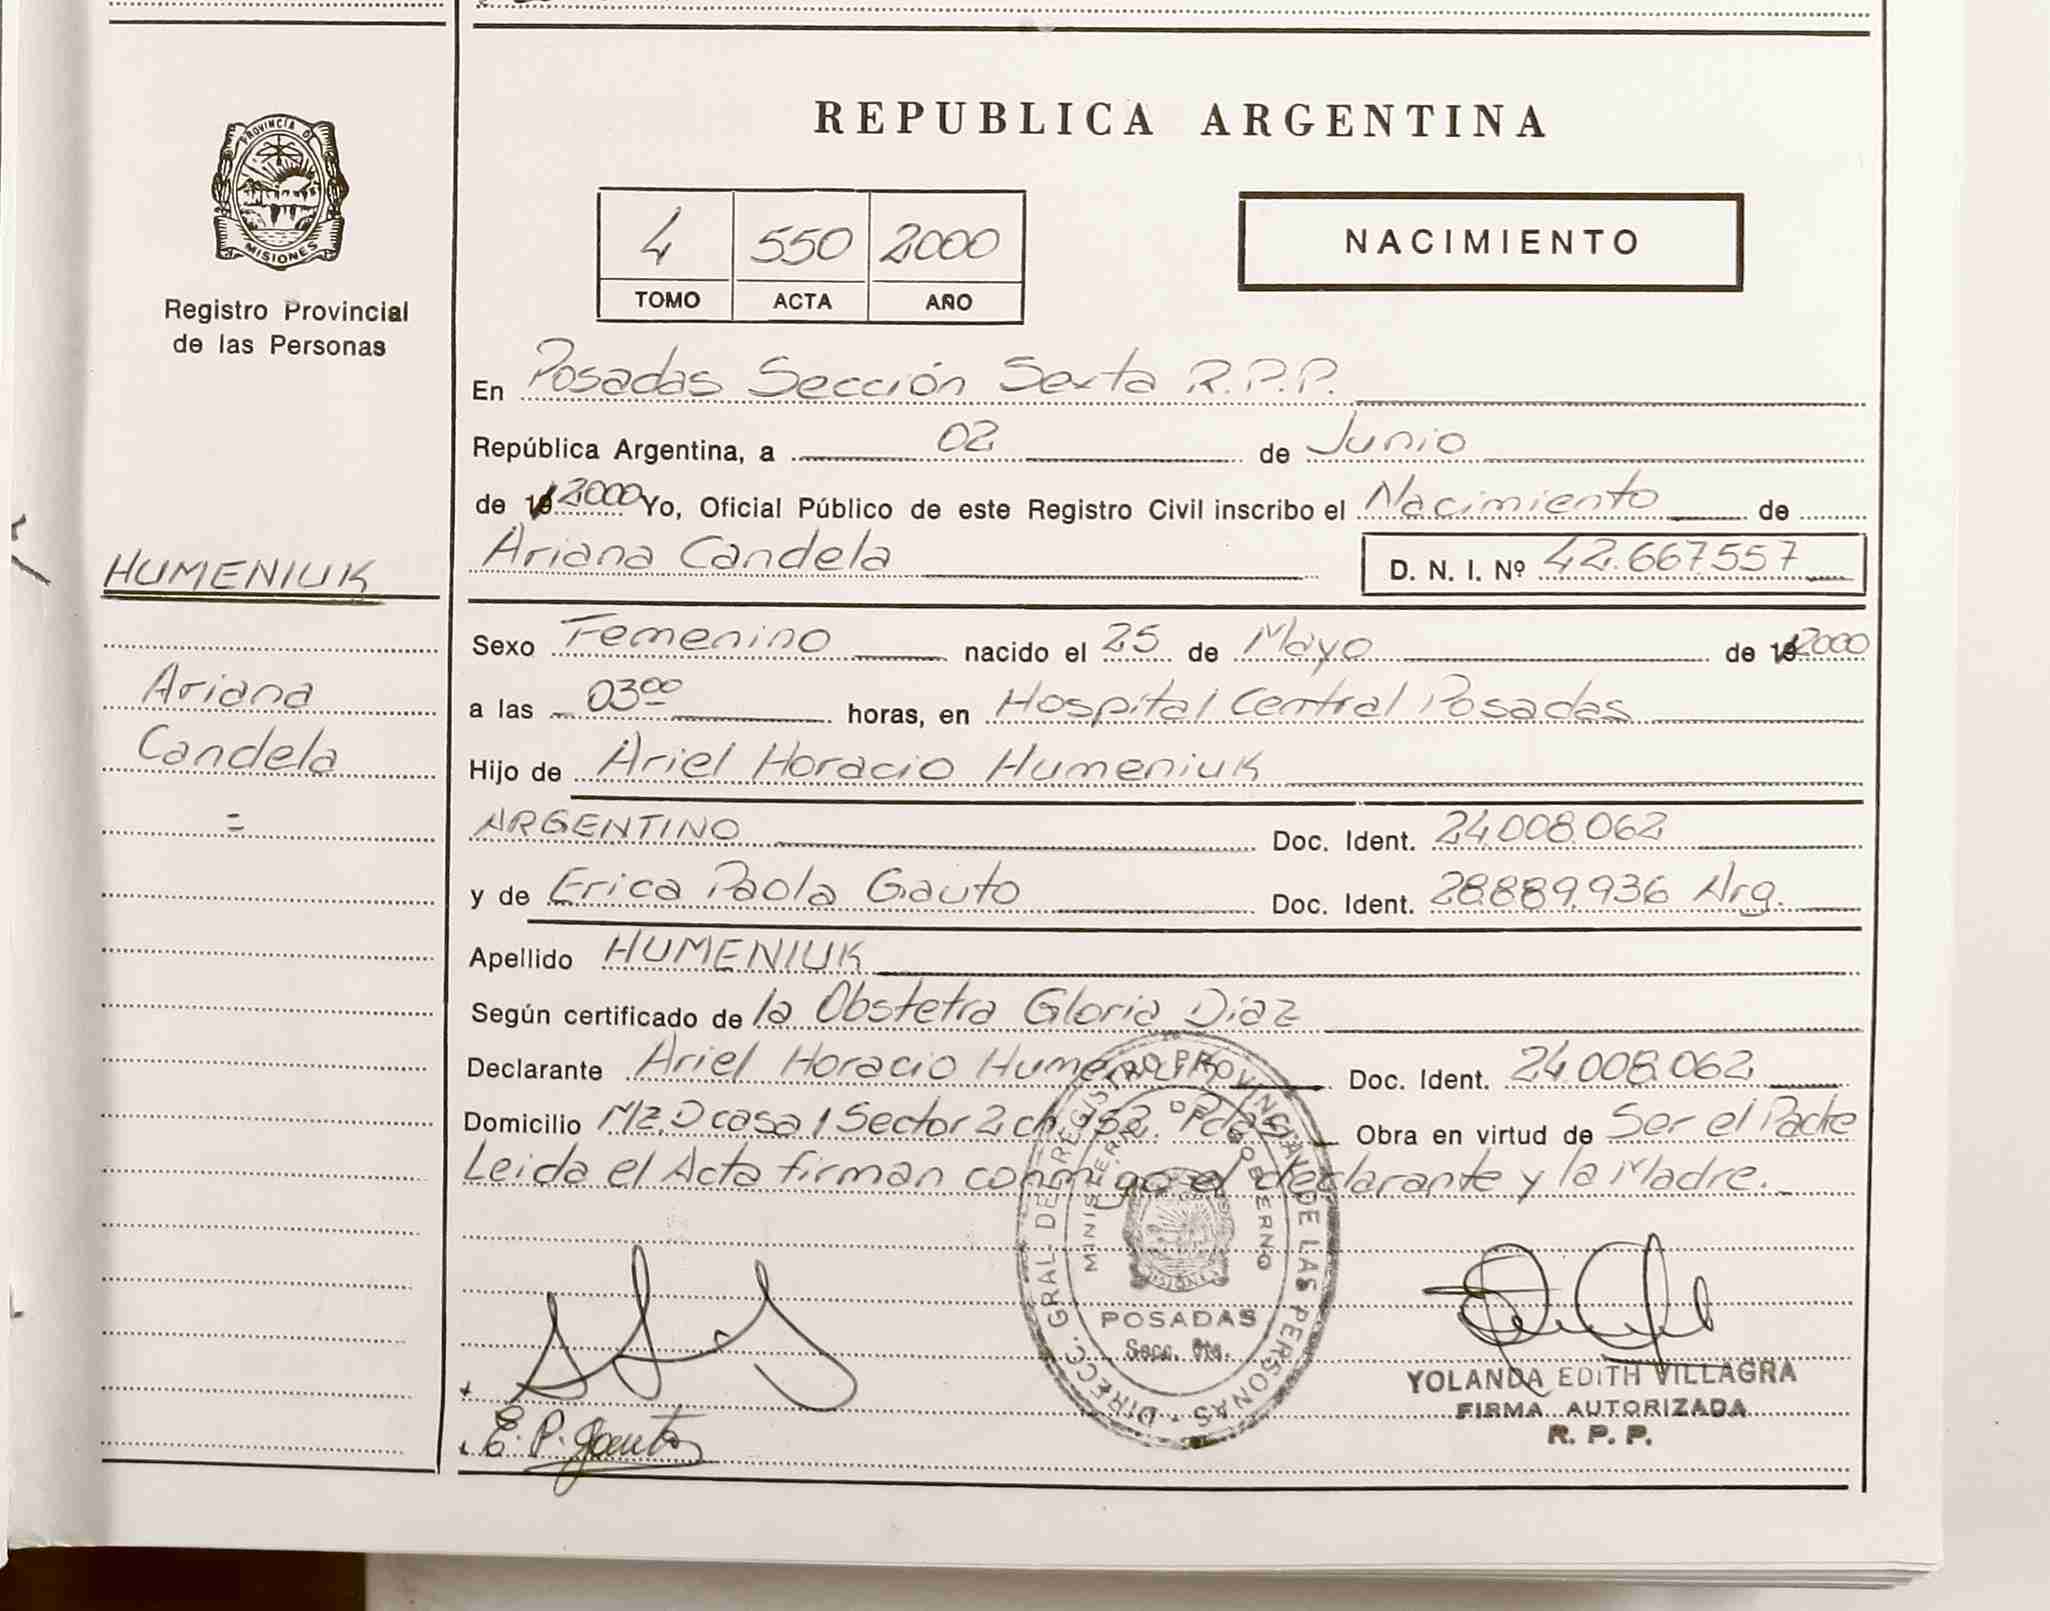 REPUBLICA ARGENTINA
PROVINCIA D
MISIONES
Registro Provincial
de las Personas
4 550 2000
TOMO ACTA AÑO
NACIMIENTO
En Posadas Sección Sexta R.P.P.
República Argentina, a 02 de Junio
de 19 2000 Yo, Oficial Público de este Registro Civil inscribo el Nacimiento de
Ariana Candela D. N. I. Nº 42.667.557
HUMENIUK
Ariana
Candela
=
Sexo Femenino nacido el 25 de Mayo de 19 2000
a las 03⁰⁰ horas, en Hospital Central Posadas
Hijo de Ariel Horacio Humeniuk
ARGENTINO Doc. Ident. 24.008.062
y de Erica Paola Gauto Doc. Ident. 28.889.936 Arg.
Apellido HUMENIUK
Según certificado de la Obstetra Gloria Diaz
Declarante Ariel Horacio Humeniuk Doc. Ident. 24.008.062
Domicilio Mz. D casa 1 Sector 2 ch 152. Pdas Obra en virtud de Ser el Padre
Leida el Acta firman conmigo el declarante y la Madre.
DIRECC. GRAL DE REGISTRO PROVINCIAL DE LAS PERSONAS
MINISTERIO DE GOBIERNO
MISIONES
POSADAS
Secc. 6ta.
E. P. Gauto
YOLANDA EDITH VILLAGRA
FIRMA AUTORIZADA
R. P. P.